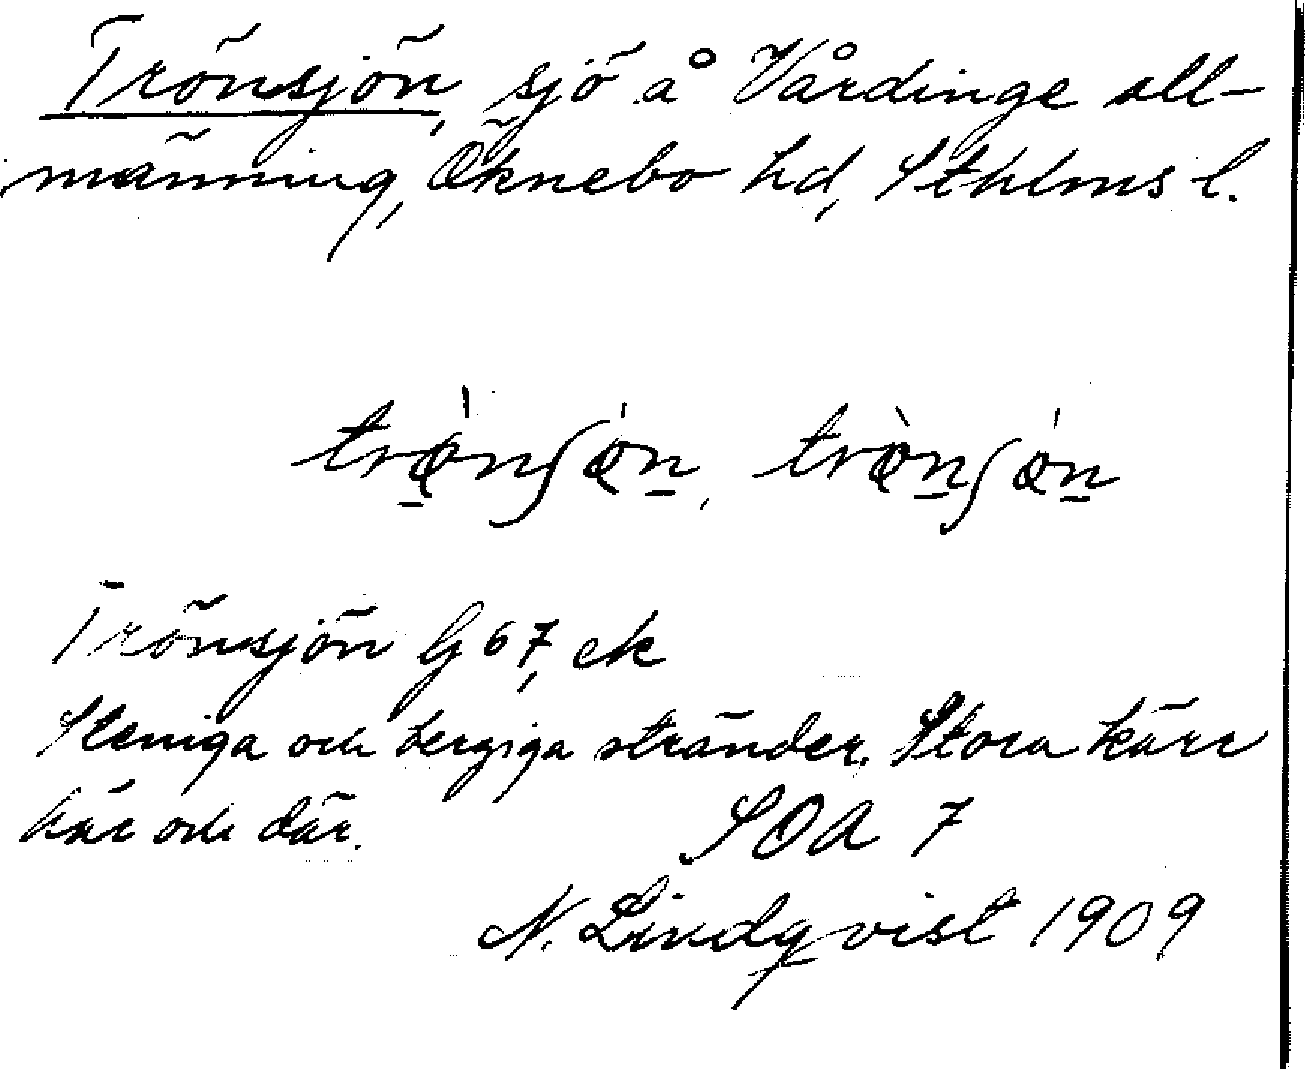 Trönsjön, sjö å Vårdinge all-
männing, Öknebo hd, Sthlms l.
Trönsjön G 67, ek
Steniga och bergiga stränder. Stora kärr
här och där. SOA 7
N. Lindqvist 1909